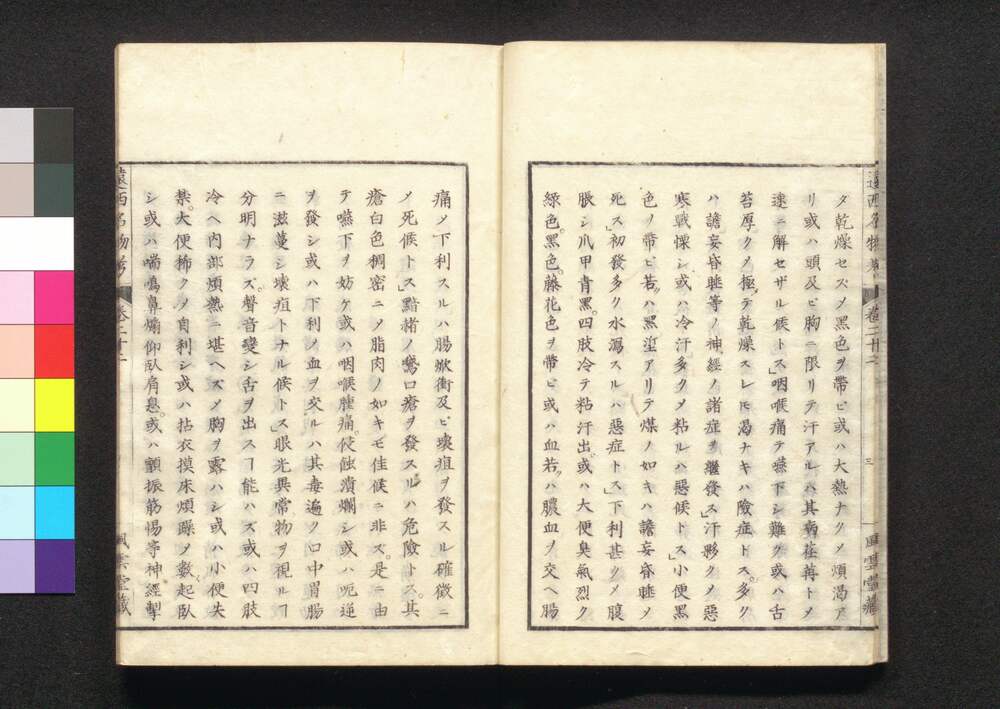 タ乾燥セズ〆黑色ヲ帶ビ或ハ大熱ナク〆煩渴ア
リ或ハ頭及ビ胸ニ限リテ汗アルハ其病荏苒ト〆
速ニ解セザル候トス」咽喉痛テ嚥下シ難ク或ハ舌
苔厚ク〆極テ乾燥スレ𪜈渴ナキハ險症トス。多ク
ハ譫妄昏睡等ノ神經ノ諸症ヲ繼發ス」汗夥ク〆惡
寒戰慄シ。或ハ冷汗多ク〆粘ルハ惡候トス」小便黑
色ノ帶ビ若クハ黑滓アリテ煤ノ如キハ譫妄昏睡〆
死ス」初發多ク水瀉スルハ惡症トス」下利甚ク〆腹
脹シ爪甲青黑。四肢冷テ粘汗出。或ハ大便臭氣烈ク
綠色。黑色。藤花色ヲ帶ビ或ハ血若クハ膿血ヲ交ヘ腸
遠西名物考 卷三十二 三 風雲堂藏
痛〆下利スルハ腸焮衝及ビ壞疽ヲ發スル確徵ニ
〆死候トス」黠緒ノ鶩口瘡ヲ發スルハ危險トス。其
瘡白色稠密ニ〆脂肉ノ如キモ佳候ニ非ズ。是ニ由
テ嚥下ヲ妨ケ或ハ咽喉腫痛。侵蝕潰爛シ或ハ呃逆
ヲ發シ或ハ下利ノ血ヲ交ルハ其毒遍ク口中胃腸
ニ滋蔓シ壞疽トナル候トス」眼光異常物ヲ視ルヿ
分明ナラズ。聲音變シ舌ヲ出スヿ能ハズ或ハ四肢
冷ヘ內部煩熱ニ堪ヘズ〆胸ヲ露ハシ或ハ小便失
禁。大便稀ク〆自利シ或ハ拈衣摸床煩躁〆數起臥
シ或ハ喘鳴鼻煽仰臥肩息。或ハ顫振筋惕等神經掣
遠西名物考 卷三十二 風雲堂藏